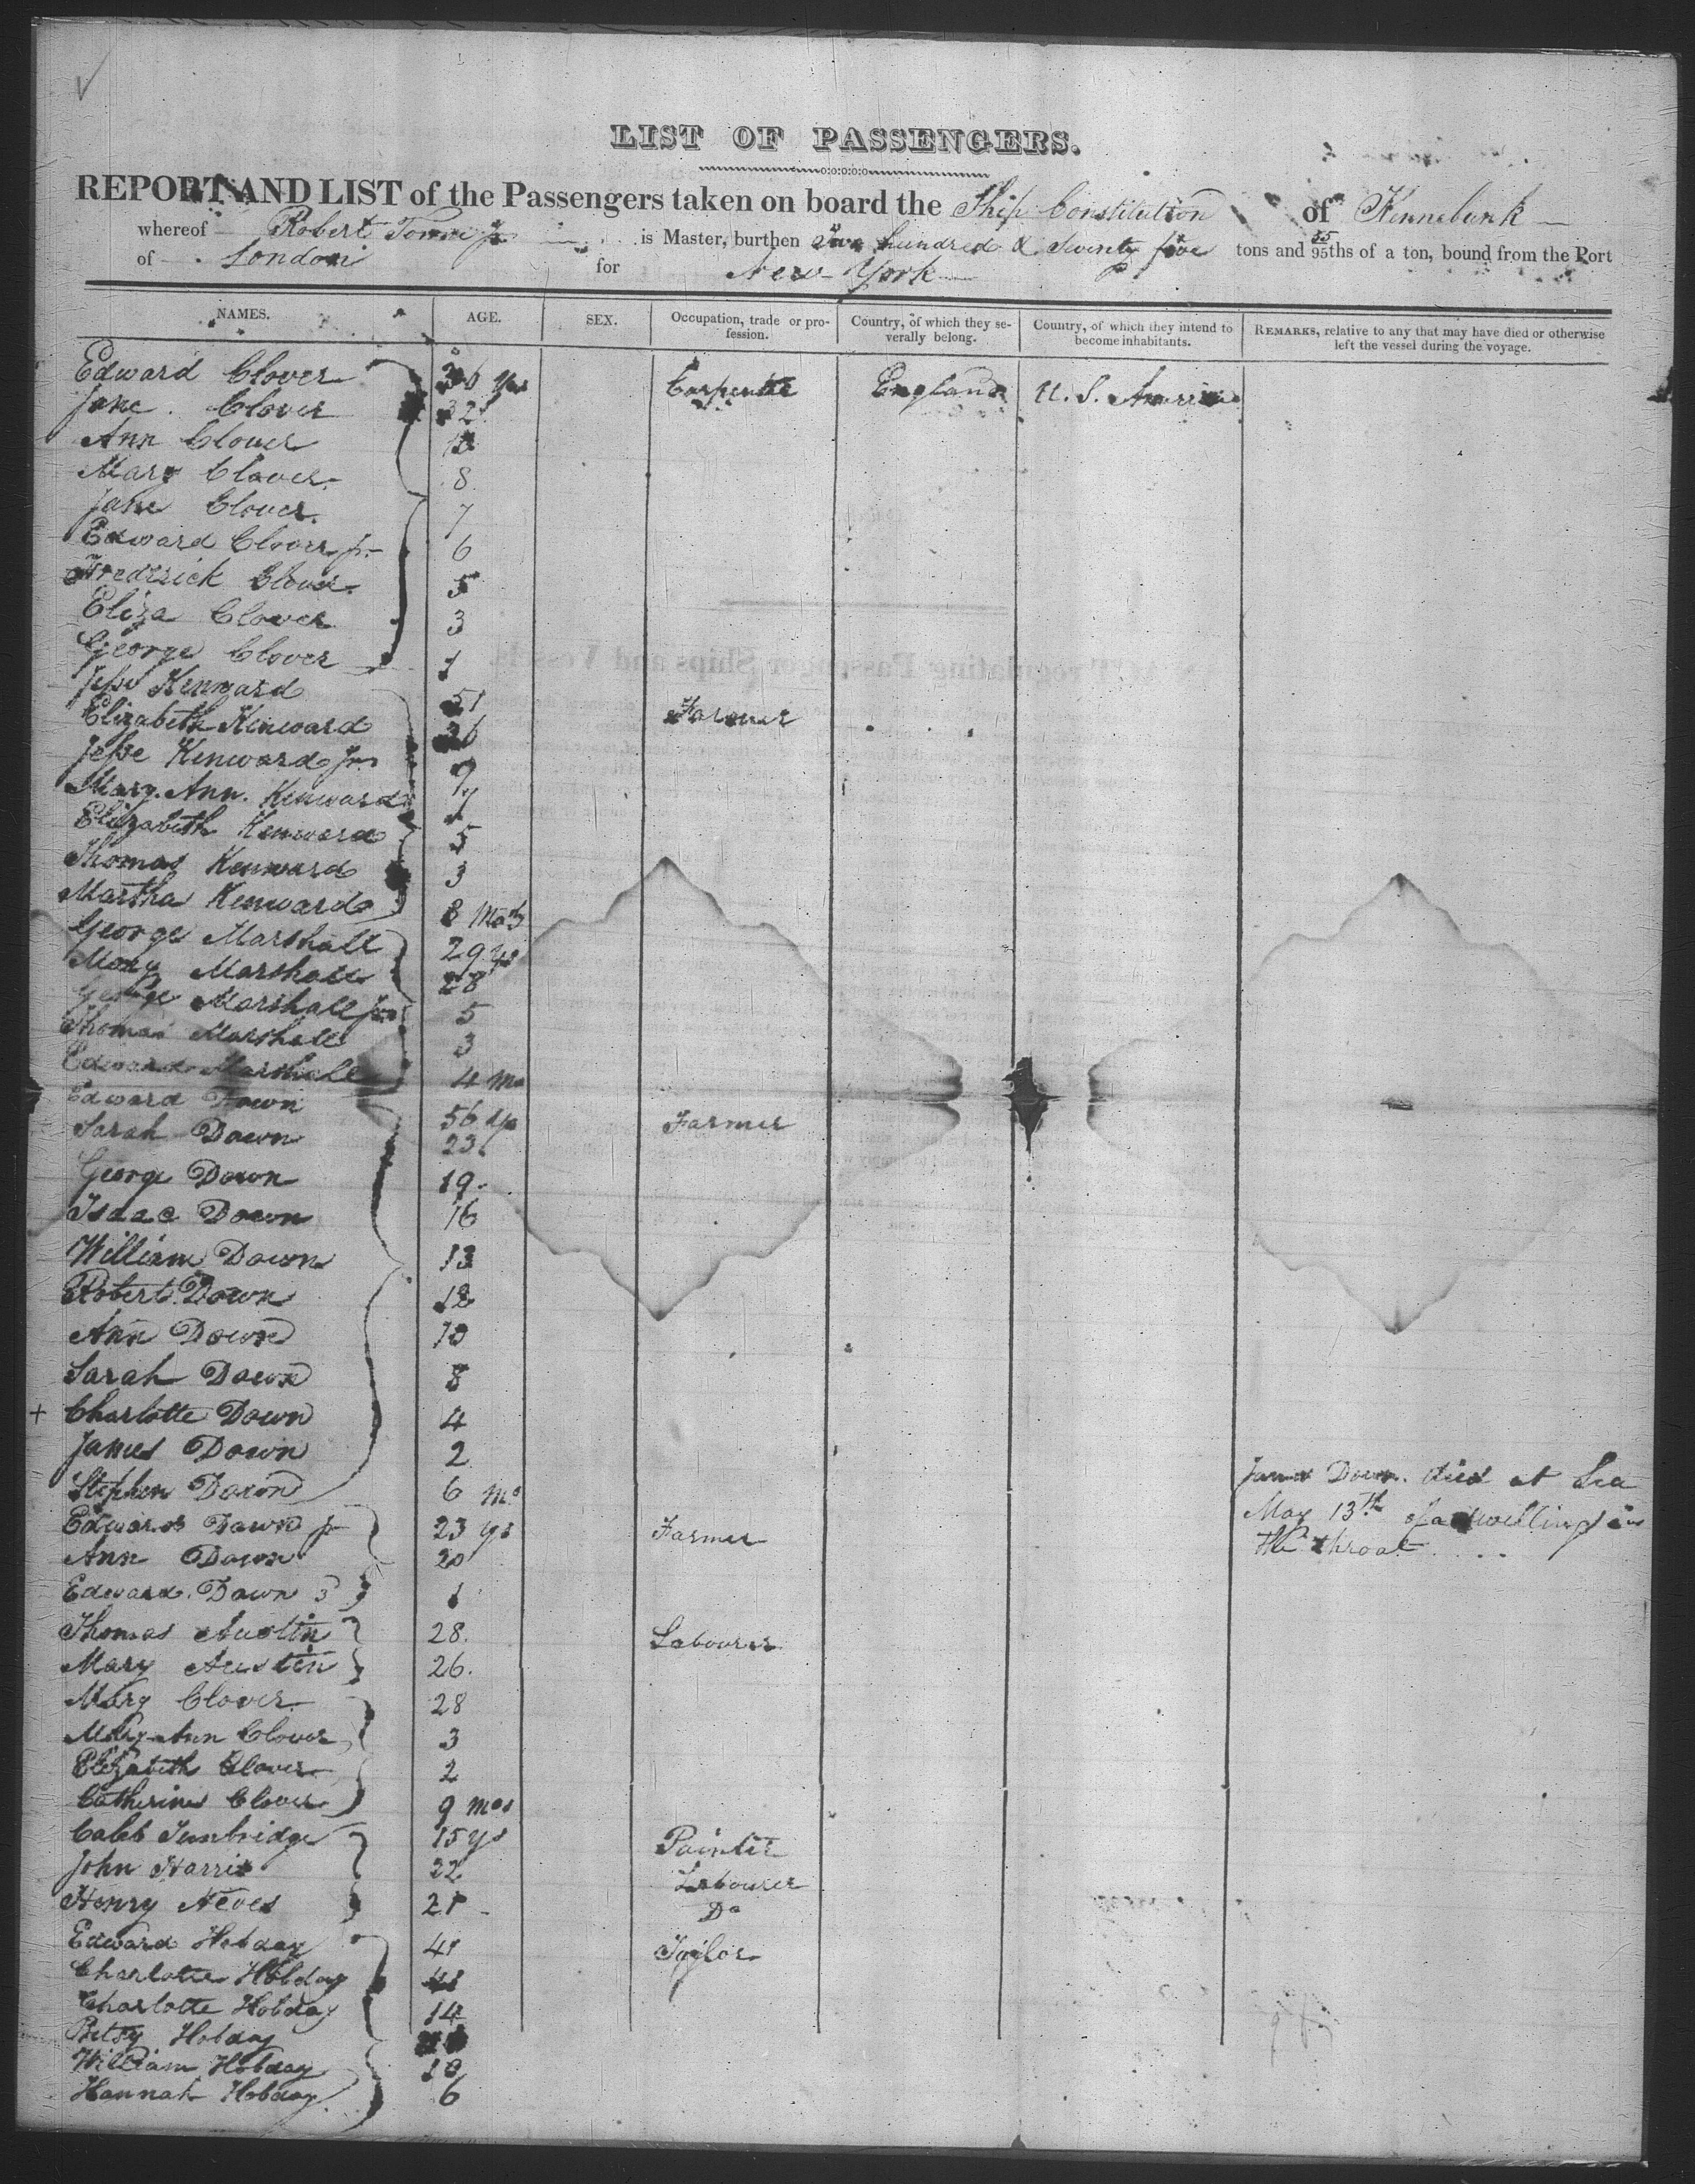 LIST OF PASSENGERS.
REPORT AND LIST of the Passengers taken on board the Ship Constitution of Kennebunk
whereof Robert is Master, burthen Two hundred & Twenty five tons and 55/95ths of a ton, bound from the Port
of London for New-York
NAMES. AGE. SEX. Occupation, trade or profession. Country, of which they severally belong. Country, of which they intend to become inhabitants. REMARKS, relative to any that may have died or otherwise left the vessel during the voyage.
Edward Clover 36 yrs Carpenter England U. S. America
Jane Clover 32
Ann Clover
Mary Clover 8
Jane Clover 7
Edward Clover jr 6
Frederick Clover 5
Eliza Clover 3
George Clover 1
Jesse Kenward 31 Farmer
Elizabeth Kenward
Jesse Kenward Jr 9
Mary Ann Kenward 7
Elizabeth Kenward 5
Thomas Kenward 3
Martha Kenward 8 Mos
George Marshall 29 ys
Mary Marshall 28
George Marshall Jr 5
Thomas Marshall 3
Edward Marshall 4 Mo
Edward Dawn 56 ys Farmer
Sarah Dawn 23
George Dawn 19
Isaac Dawn 16
William Dawn 13
Robert Dawn 12
Ann Dawn 10
Sarah Dawn 8
+ Charlotte Dawn 4
James Dawn 2
Stephen Dawn 6 Mo James Dawn died at Sea
Edward Dawn jr 23 ys Farmer May 13th of a swelling in
Ann Dawn 20 the throat
Edward Dawn 3 1
Thomas Austin 28 Labourer
Mary Austin 26
Mary Clover 28
Mary Ann Clover 3
Elizabeth Clover 2
Catherine Clover 9 Mos
Caleb Tunbridge 15 ys Painter
John Harris 22 Labourer
Henry Neves 21 Do
Edward Hobday 41 Taylor
Charlotte Hobday 41
Charlotte Hobday 14
Betsy Hobday
William Hobday 10
Hannah Hobday 6